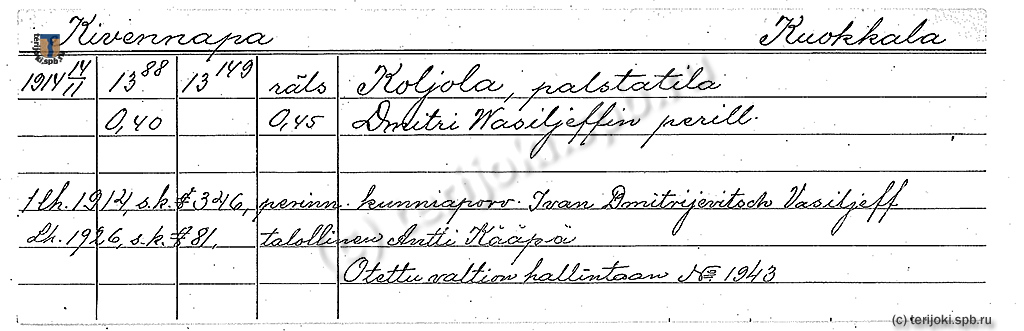 Kivennapa Kuokkala
1914 14/11 13 88 13 149 räls Koljola, palstatila
0,40 0,45 Dmitri Wasiljeffin perill.
1 lh. 1914, s.k. § 346, perinn. kunniaporv. Ivan Dmitrijevitsch Vasiljeff
Lh. 1926, s.k. § 81, talollinen Antti Kääpä
Otettu valtion hallintaan № 1943
(c) terijoki.spb.ru
(c) terijoki.spb.ru